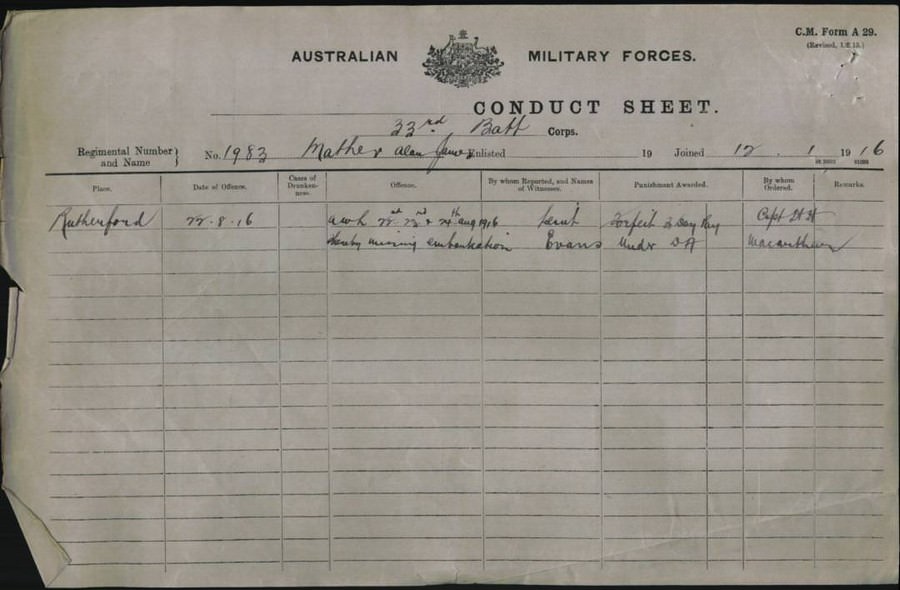 C.M. Form A 29.
AUSTRALIAN MILITARY FORCES.
CONDUCT SHEET.
33rd Batt Corps.
Regimental Number and Name } No. 1983 Mather Alan James Enlisted 19 Joined 12 . 1 1916
Place. Date of Offence. Cases of Drunken-ness. Offence. By whom Reported, and Names of Witnesses. Punishment Awarded. By whom Ordered. Remarks.
Rutherford 22.8.16 awl 22nd 23rd & 24th Aug 1916 Lieut Forfeit 3 Day Pay Capt
thereby missing embarkation Evans Under DA